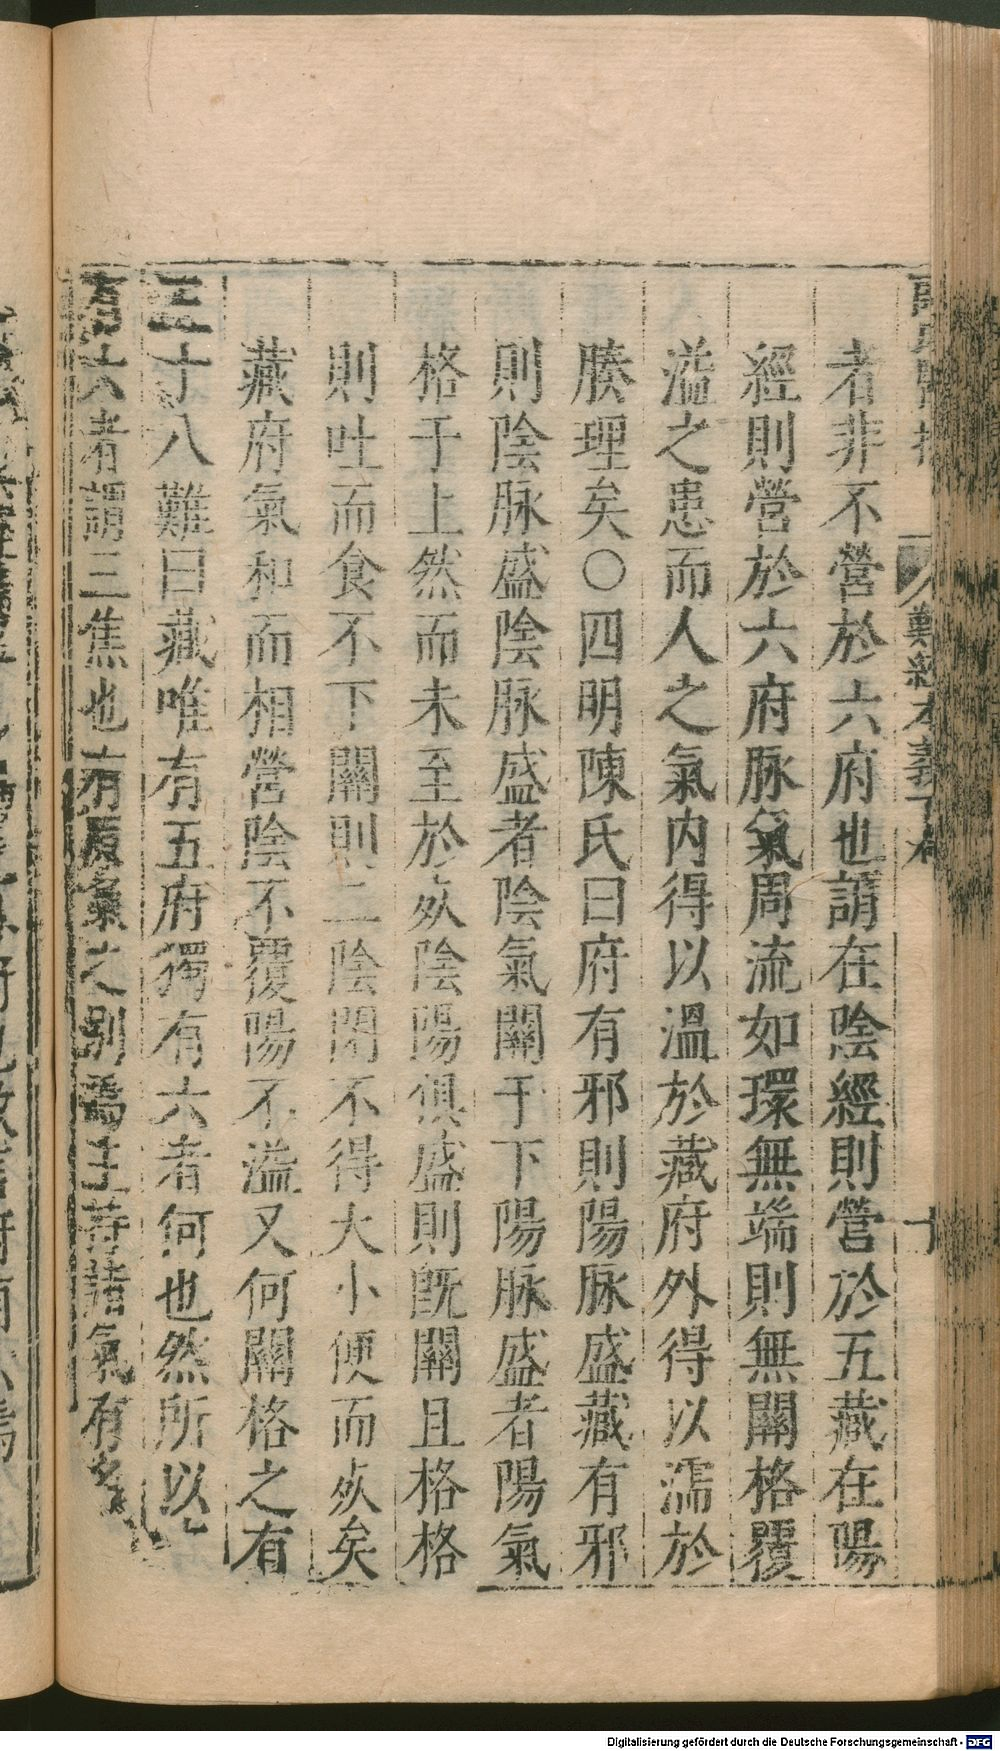 難經本義下卷
十
者非不營於六府也謂在陰經則營於五藏在陽
經則營於六府脉氣周流如環無端則無關格覆
溢之患而人之氣内得以溫於藏府外得以濡於
腠理矣○四明陳氏曰府有邪則陽脉盛藏有邪
則陰脉盛陰脉盛者陰氣關于下陽脉盛者陽氣
格于上然而未至於死陰陽俱盛則既關且格格
則吐而食不下關則二陰閉不得大小便而死矣
藏府氣和而相營陰不覆陽不溢又何關格之有
三十八難曰藏唯有五府獨有六者何也然所以
府六者謂三焦也有原氣之别焉主持諸氣有名
Digitalisierung gefördert durch die Deutsche Forschungsgemeinschaft - DFG